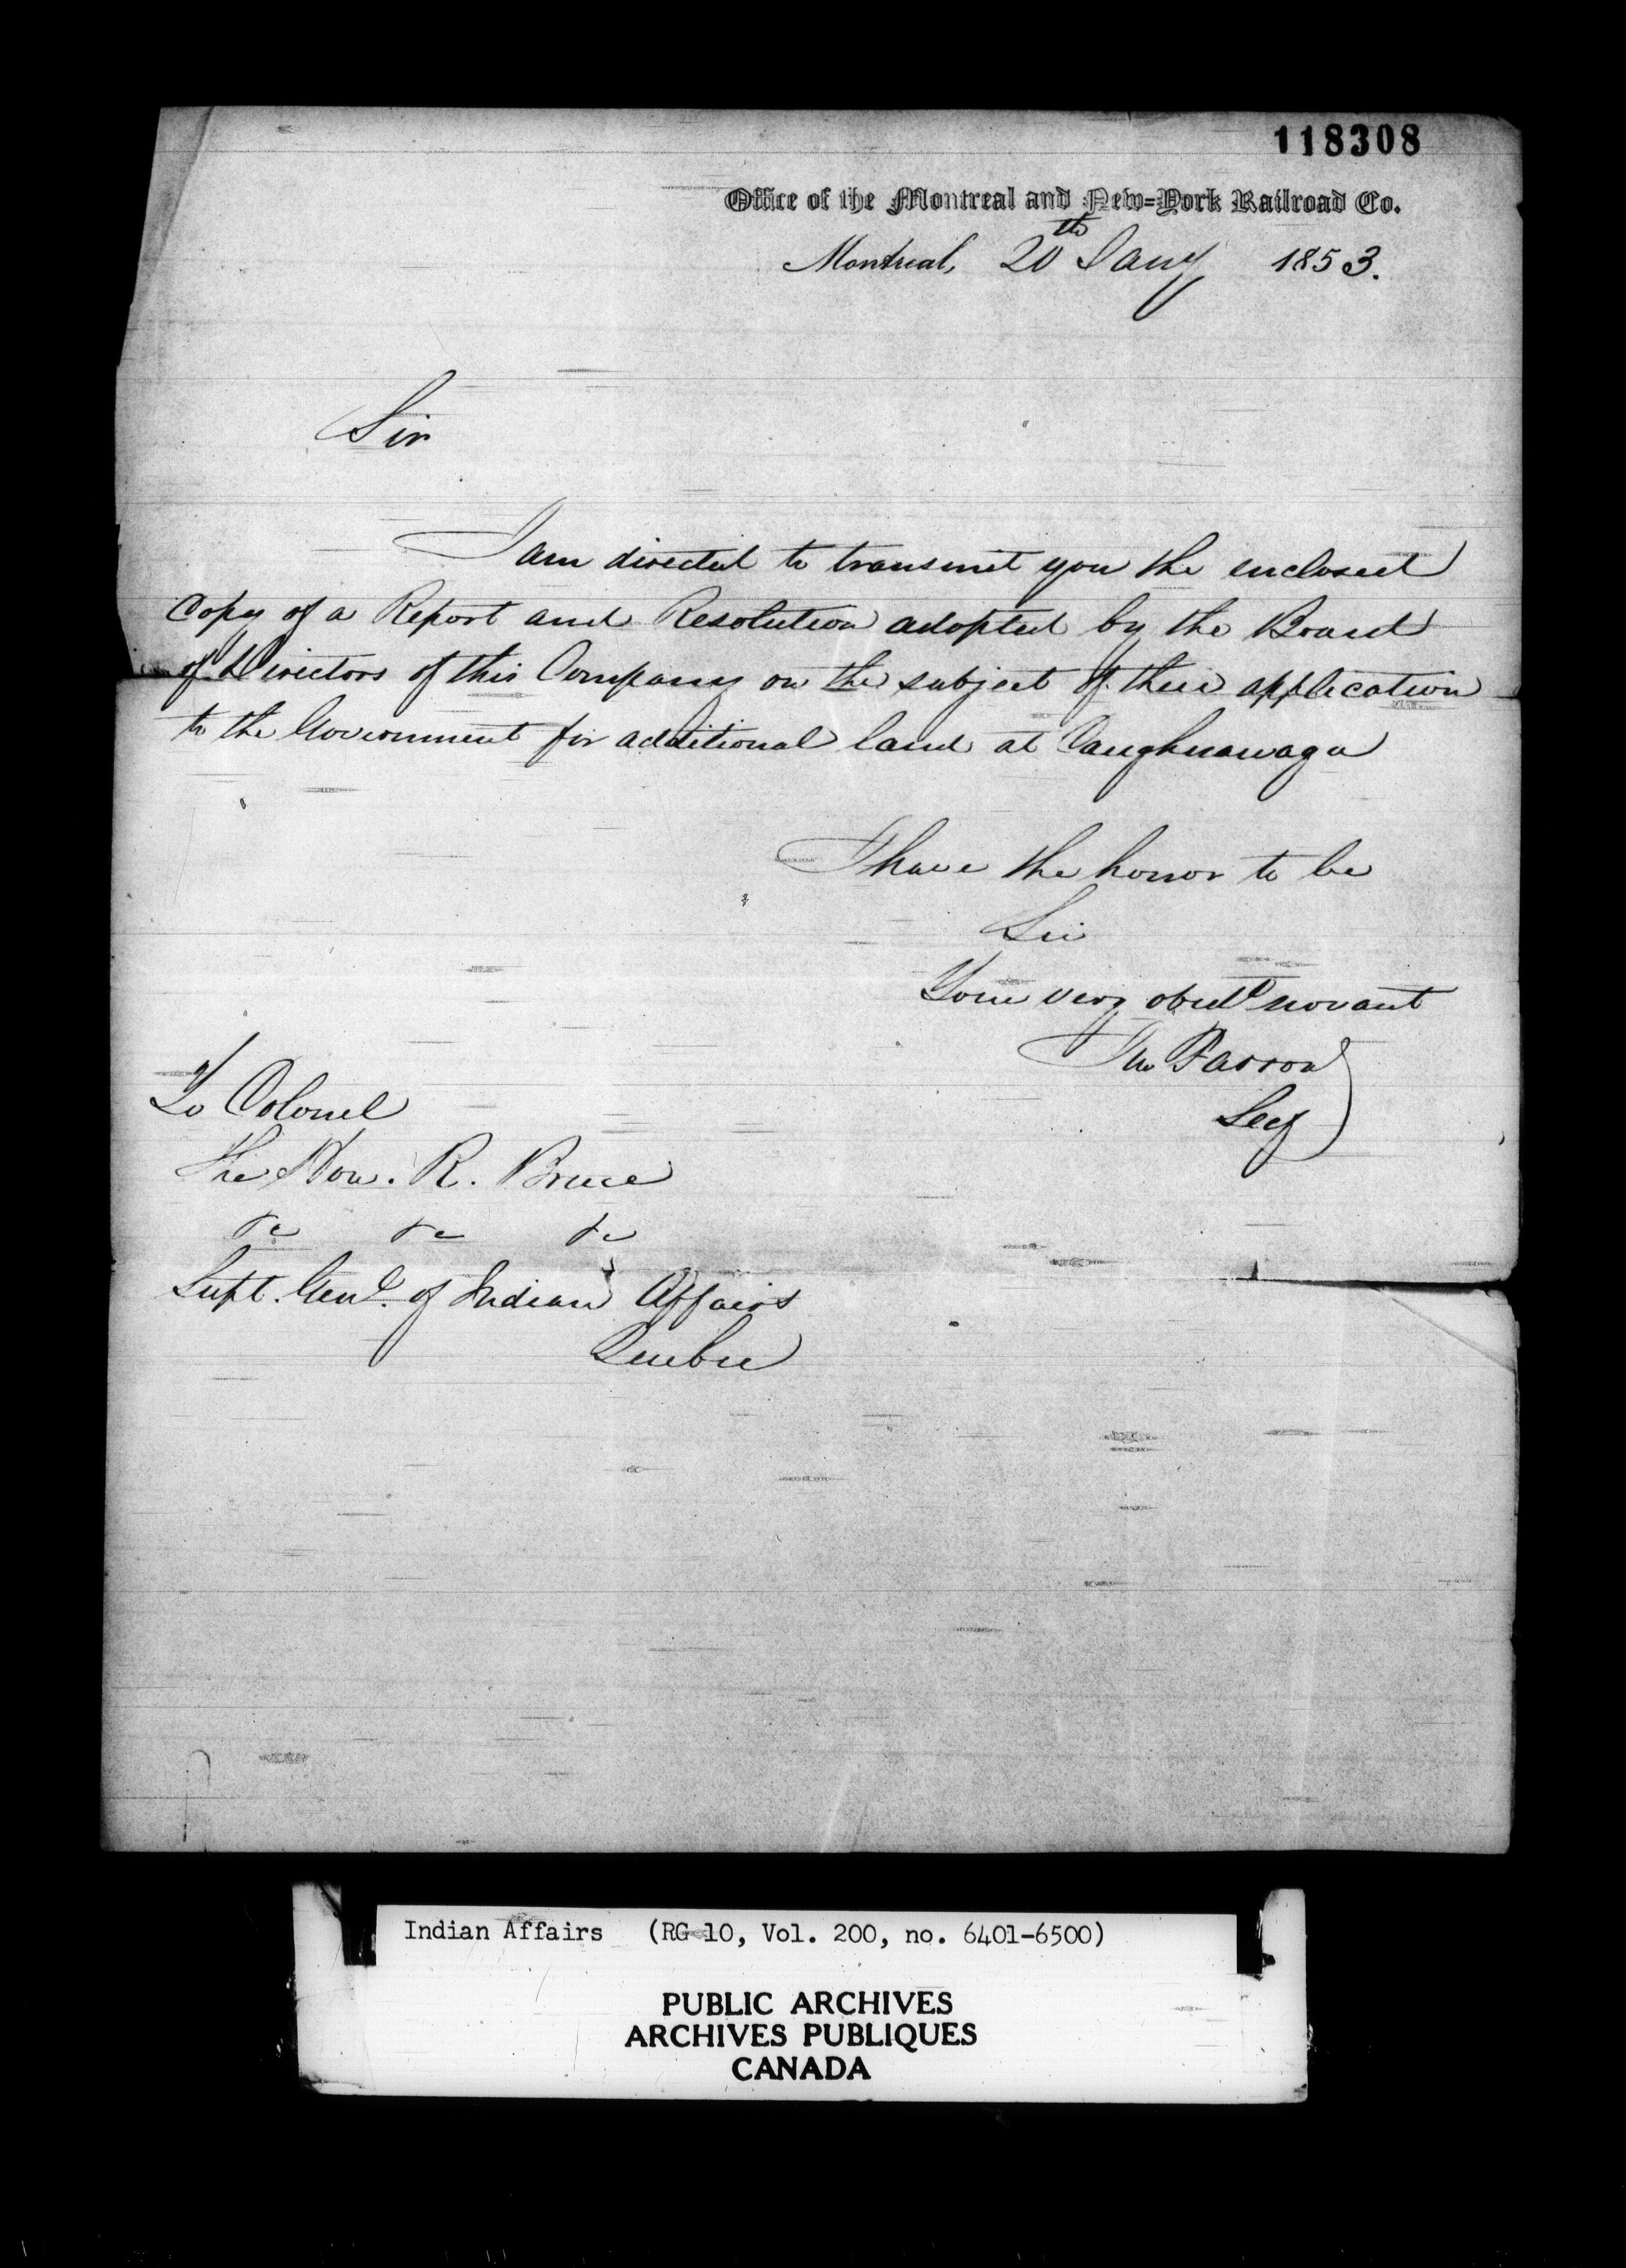 118308
Office of the Montreal and New-York Railroad Co.
Montreal, 20th Jany 1853.
Sir
I am directed to transmit you the enclosed
Copy of a Report and Resolution adopted by the Board
of Directors of this Company on the subject of their application
to the Government for additional land at Caughnawaga
I have the honor to be
Sir
Your very obedt servant
Farrow
Secy
To Colonel
The Hon. R. Bruce
&c &c &c
Supt. Genl. of Indian Affairs
Quebec
Indian Affairs (RG 10, Vol. 200, no. 6401-6500)
PUBLIC ARCHIVES
ARCHIVES PUBLIQUES
CANADA